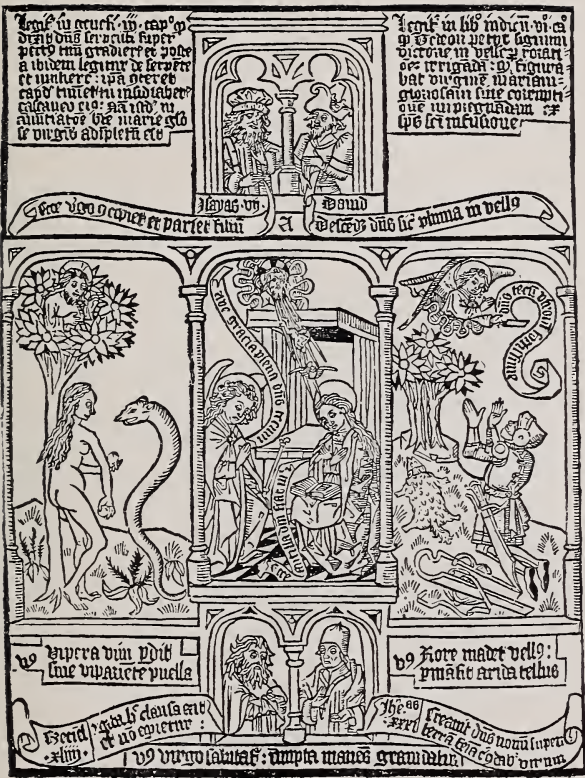 Legit' in genesi iij capº q
dixit dns serpenti super
pectus tuum gradieris et postea
ibidem legitur de serpente
et muliere : ipa conteret
caput tuum et tu insidiaber
calcaneo eiº : nam istud in
annutiatõe bte marie glo
se virginis adipletum est
Legit in lib iudicum vi ca
q Gedeon petiit signum
victorie in vellere p rorati
irrigãda : qd figura
bat virginem mariam
gloriosam sine corrupti
one impregnãdam ex
spūs scī infusione
Ysayas vij
Dauid
Ecce virgo concipiet et pariet filium
A
Descēdet dns sic pluuia in vellº
Aue gracia plena dns tecum
Ecce ancilla dñi fiat m
dns tecū virorū fortissime
vº Vipera vim perdit
sine vi pariente puella
vº Rore madet vellº :
permāsit arida tellus
Ezeciel
xliiii
porta hec clausa erit
et nō aperietur :
Ihe as
xxxi
Creauit dns nouū super
terrā femīa cōdab virum
vº virgo salutat : inupta manēs grauidatur